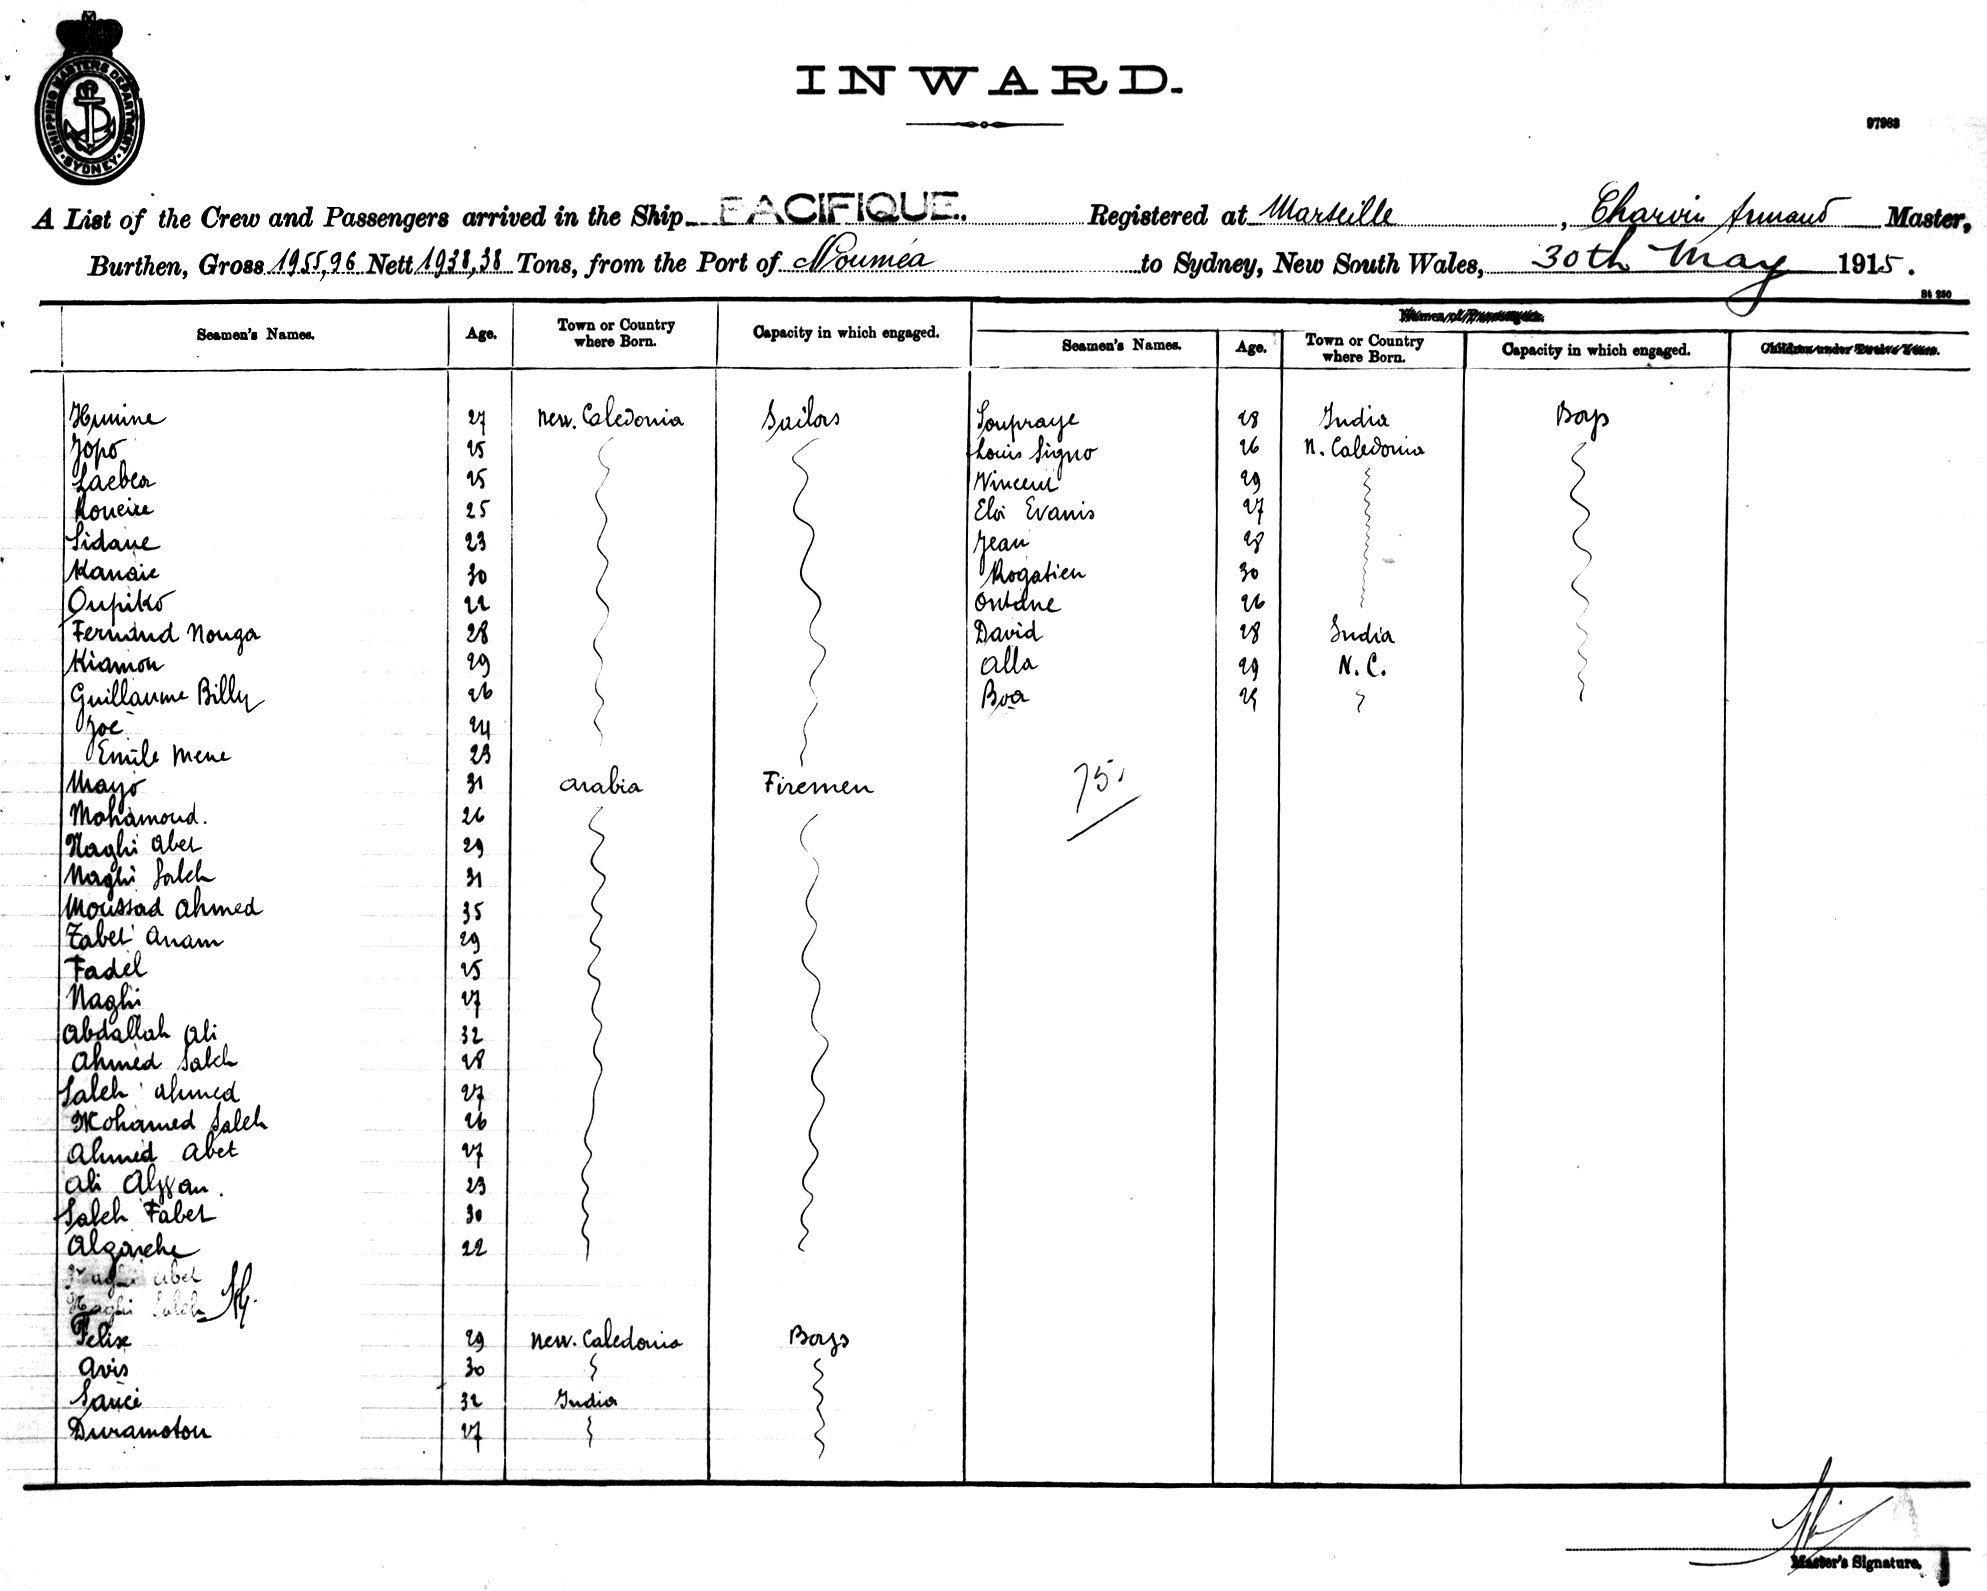 SHIPPING MASTERS DEPARTMENT
SYDNEY
INWARD.
97963
A List of the Crew and Passengers arrived in the Ship PACIFIQUE. Registered at Marseille, Charvin Armand Master,
Burthen, Gross 1955,96 Nett 1938,38 Tons, from the Port of Nouméa to Sydney, New South Wales, 30th May 1915.
St 250
Seamen's Names. Age. Town or Country where Born. Capacity in which engaged.
Seamen's Names. Age. Town or Country where Born. Capacity in which engaged. Children under Twelve Years.
27 New. Caledonia Sailors
Jopo 25
25
Koueire 25
Sidane 23
Kanaie 30
Oupiko 22
Fernand Nouga 28
Kiamou 29
Guillaume Billy 26
Joe 24
Emile Mene 23
Mayo 31 Arabia Firemen
Mohamoud. 26
Naghi Abet 29
Naghi Saleh 31
Moussad Ahmed 35
Tabet Anam 29
Fadel 25
Naghi 27
Abdallah Ali 32
Ahmed Saleh 28
Saleh Ahmed 27
Mohamed Saleh 26
Ahmed Abet 27
Ali 23
Saleh Tabet 30
22
Naghi Abet
Naghi Saleh
Felix 29 New. Caledonia Boys
Avis 30
32 India
Duramotou 27
Soupraye 28 India Boys
Louis Signo 26 N. Caledonia
Vincent 29
Eloi Evanis 27
Jean 28
Rogatien 30
26
David 28 India
Alla 29 N. C.
Boa 25
75.
Master's Signature.